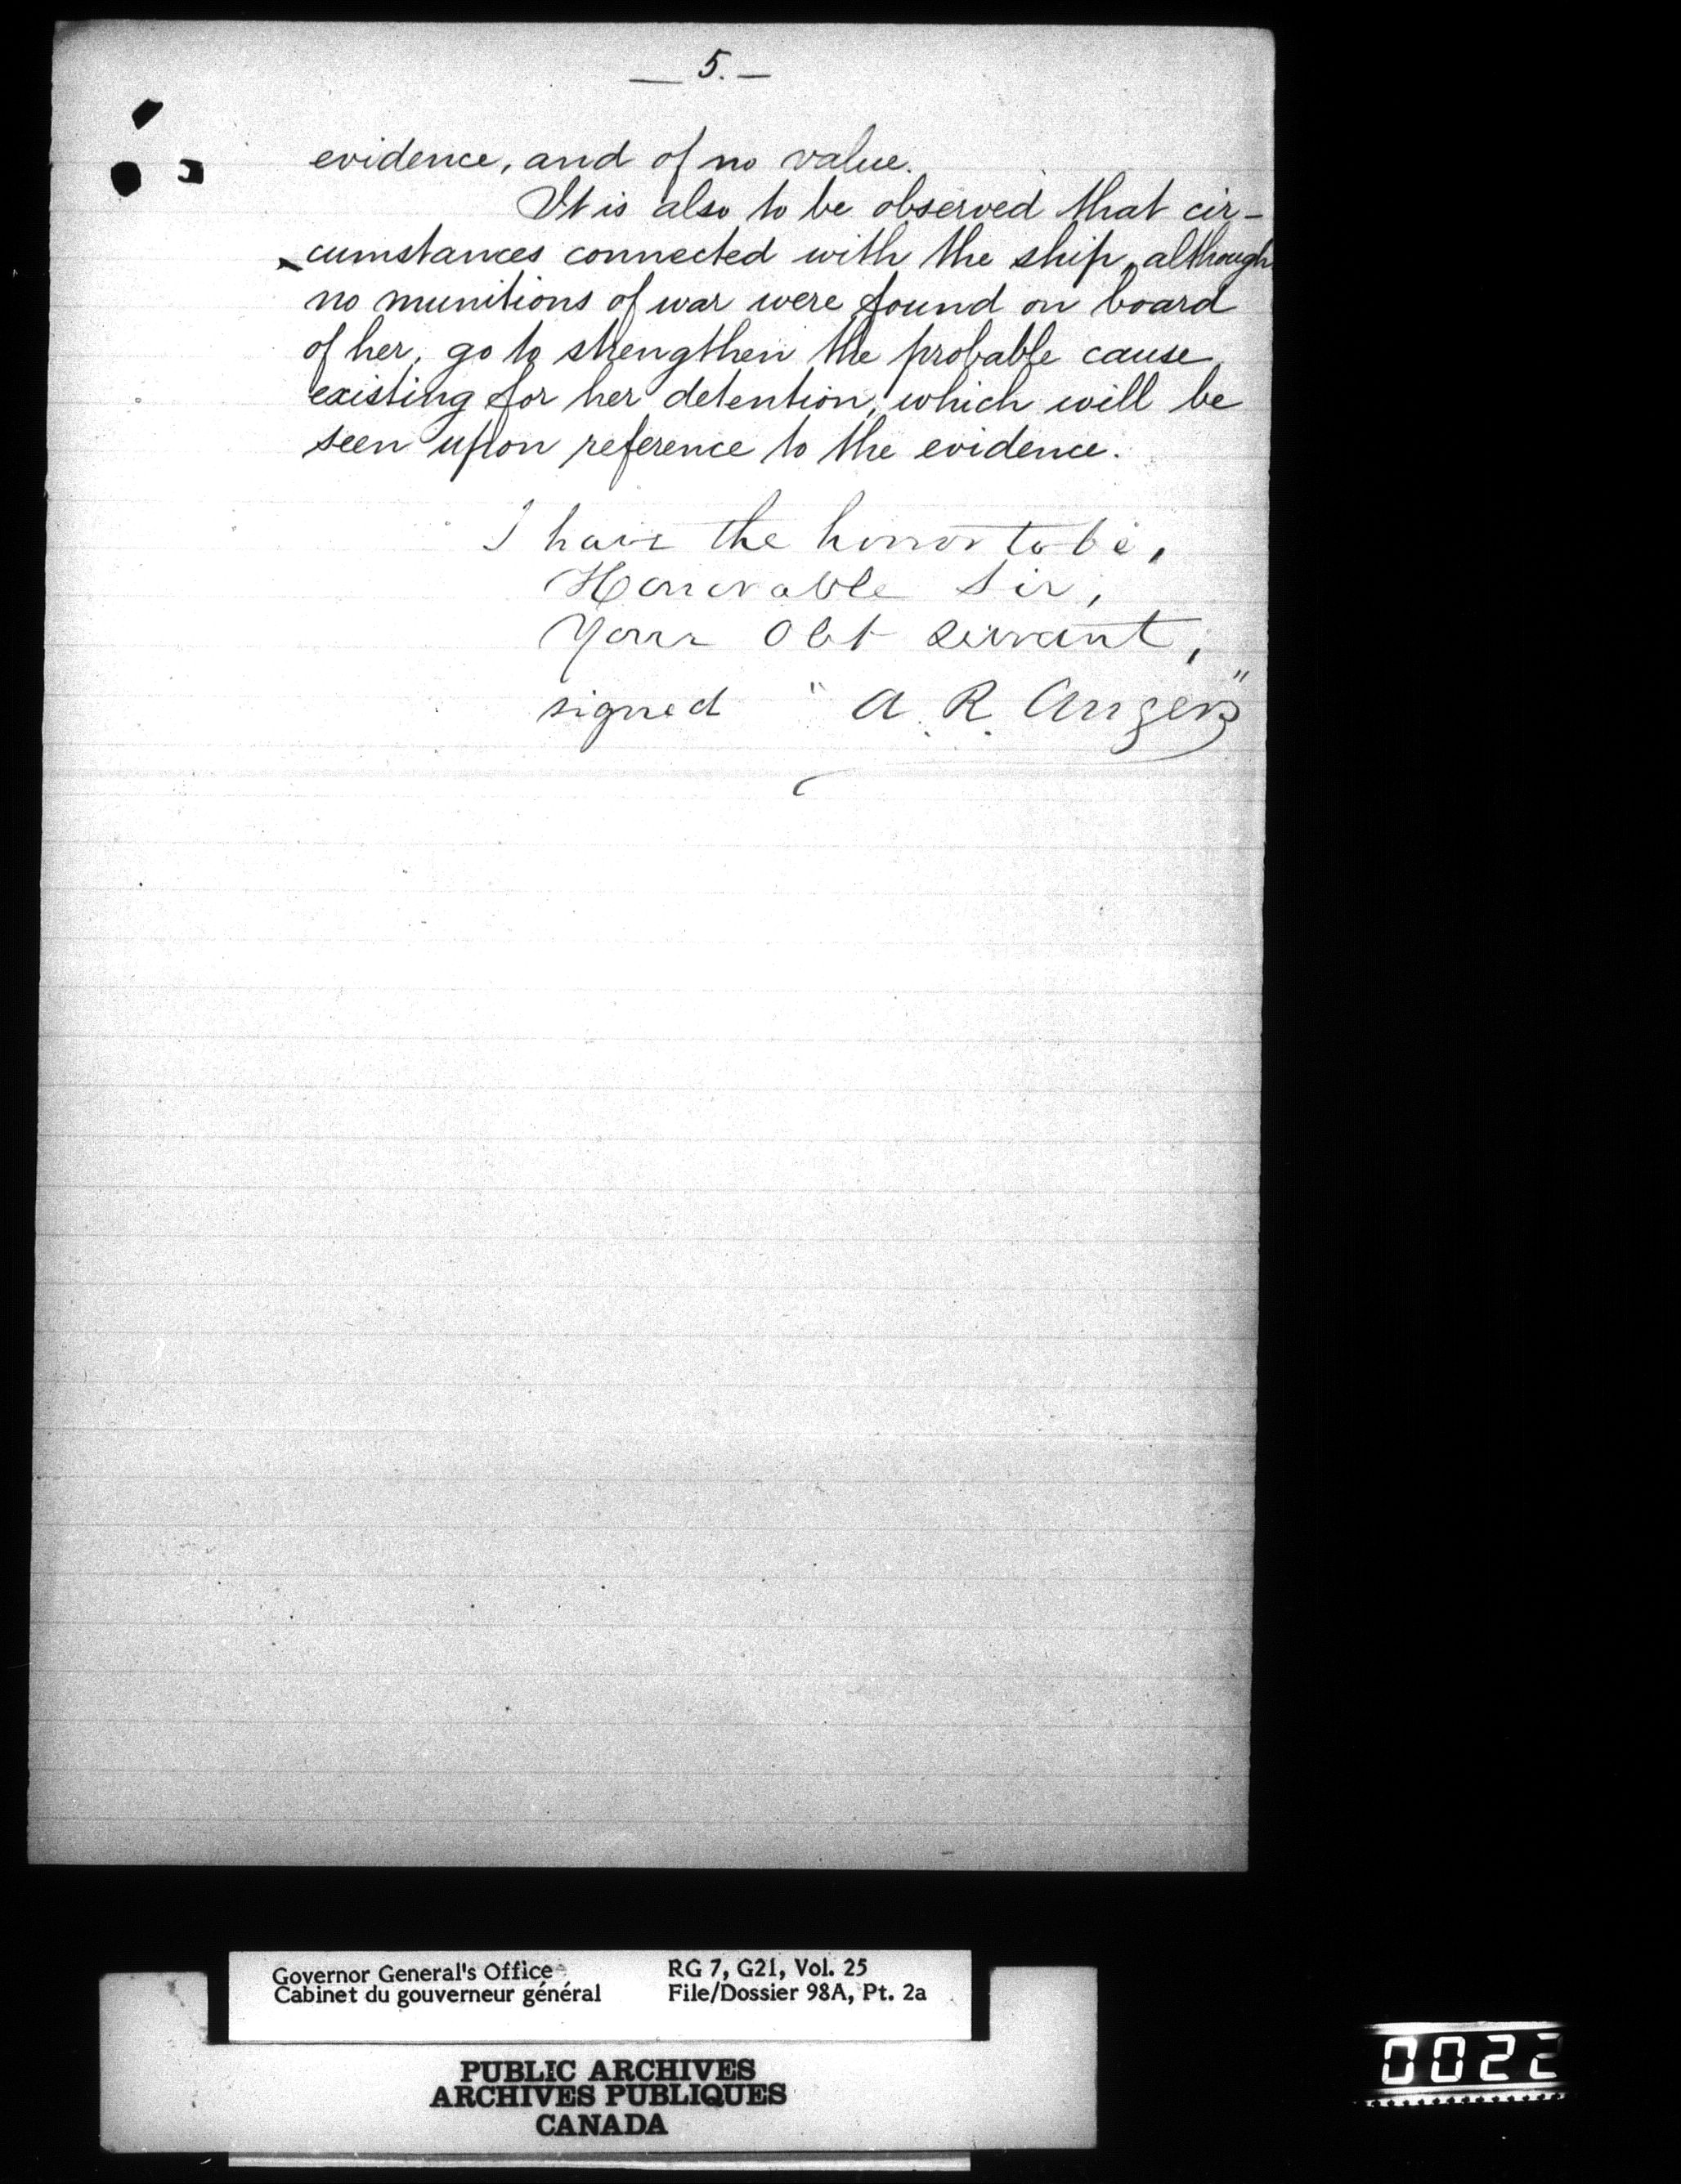 — 5. —
evidence, and of no value.
It is also to be observed that cir-
cumstances connected with the ship, although
no munitions of war were found on board
of her, go to strengthen the probable cause
existing for her detention, which will be
seen upon reference to the evidence.
I have the honor to be,
Honorable Sir,
Your Obt servant,
signed "A. R. Angers"
Governor General's Office
Cabinet du gouverneur général
RG 7, G21, Vol. 25
File/Dossier 98A, Pt. 2a
PUBLIC ARCHIVES
ARCHIVES PUBLIQUES
CANADA
0022